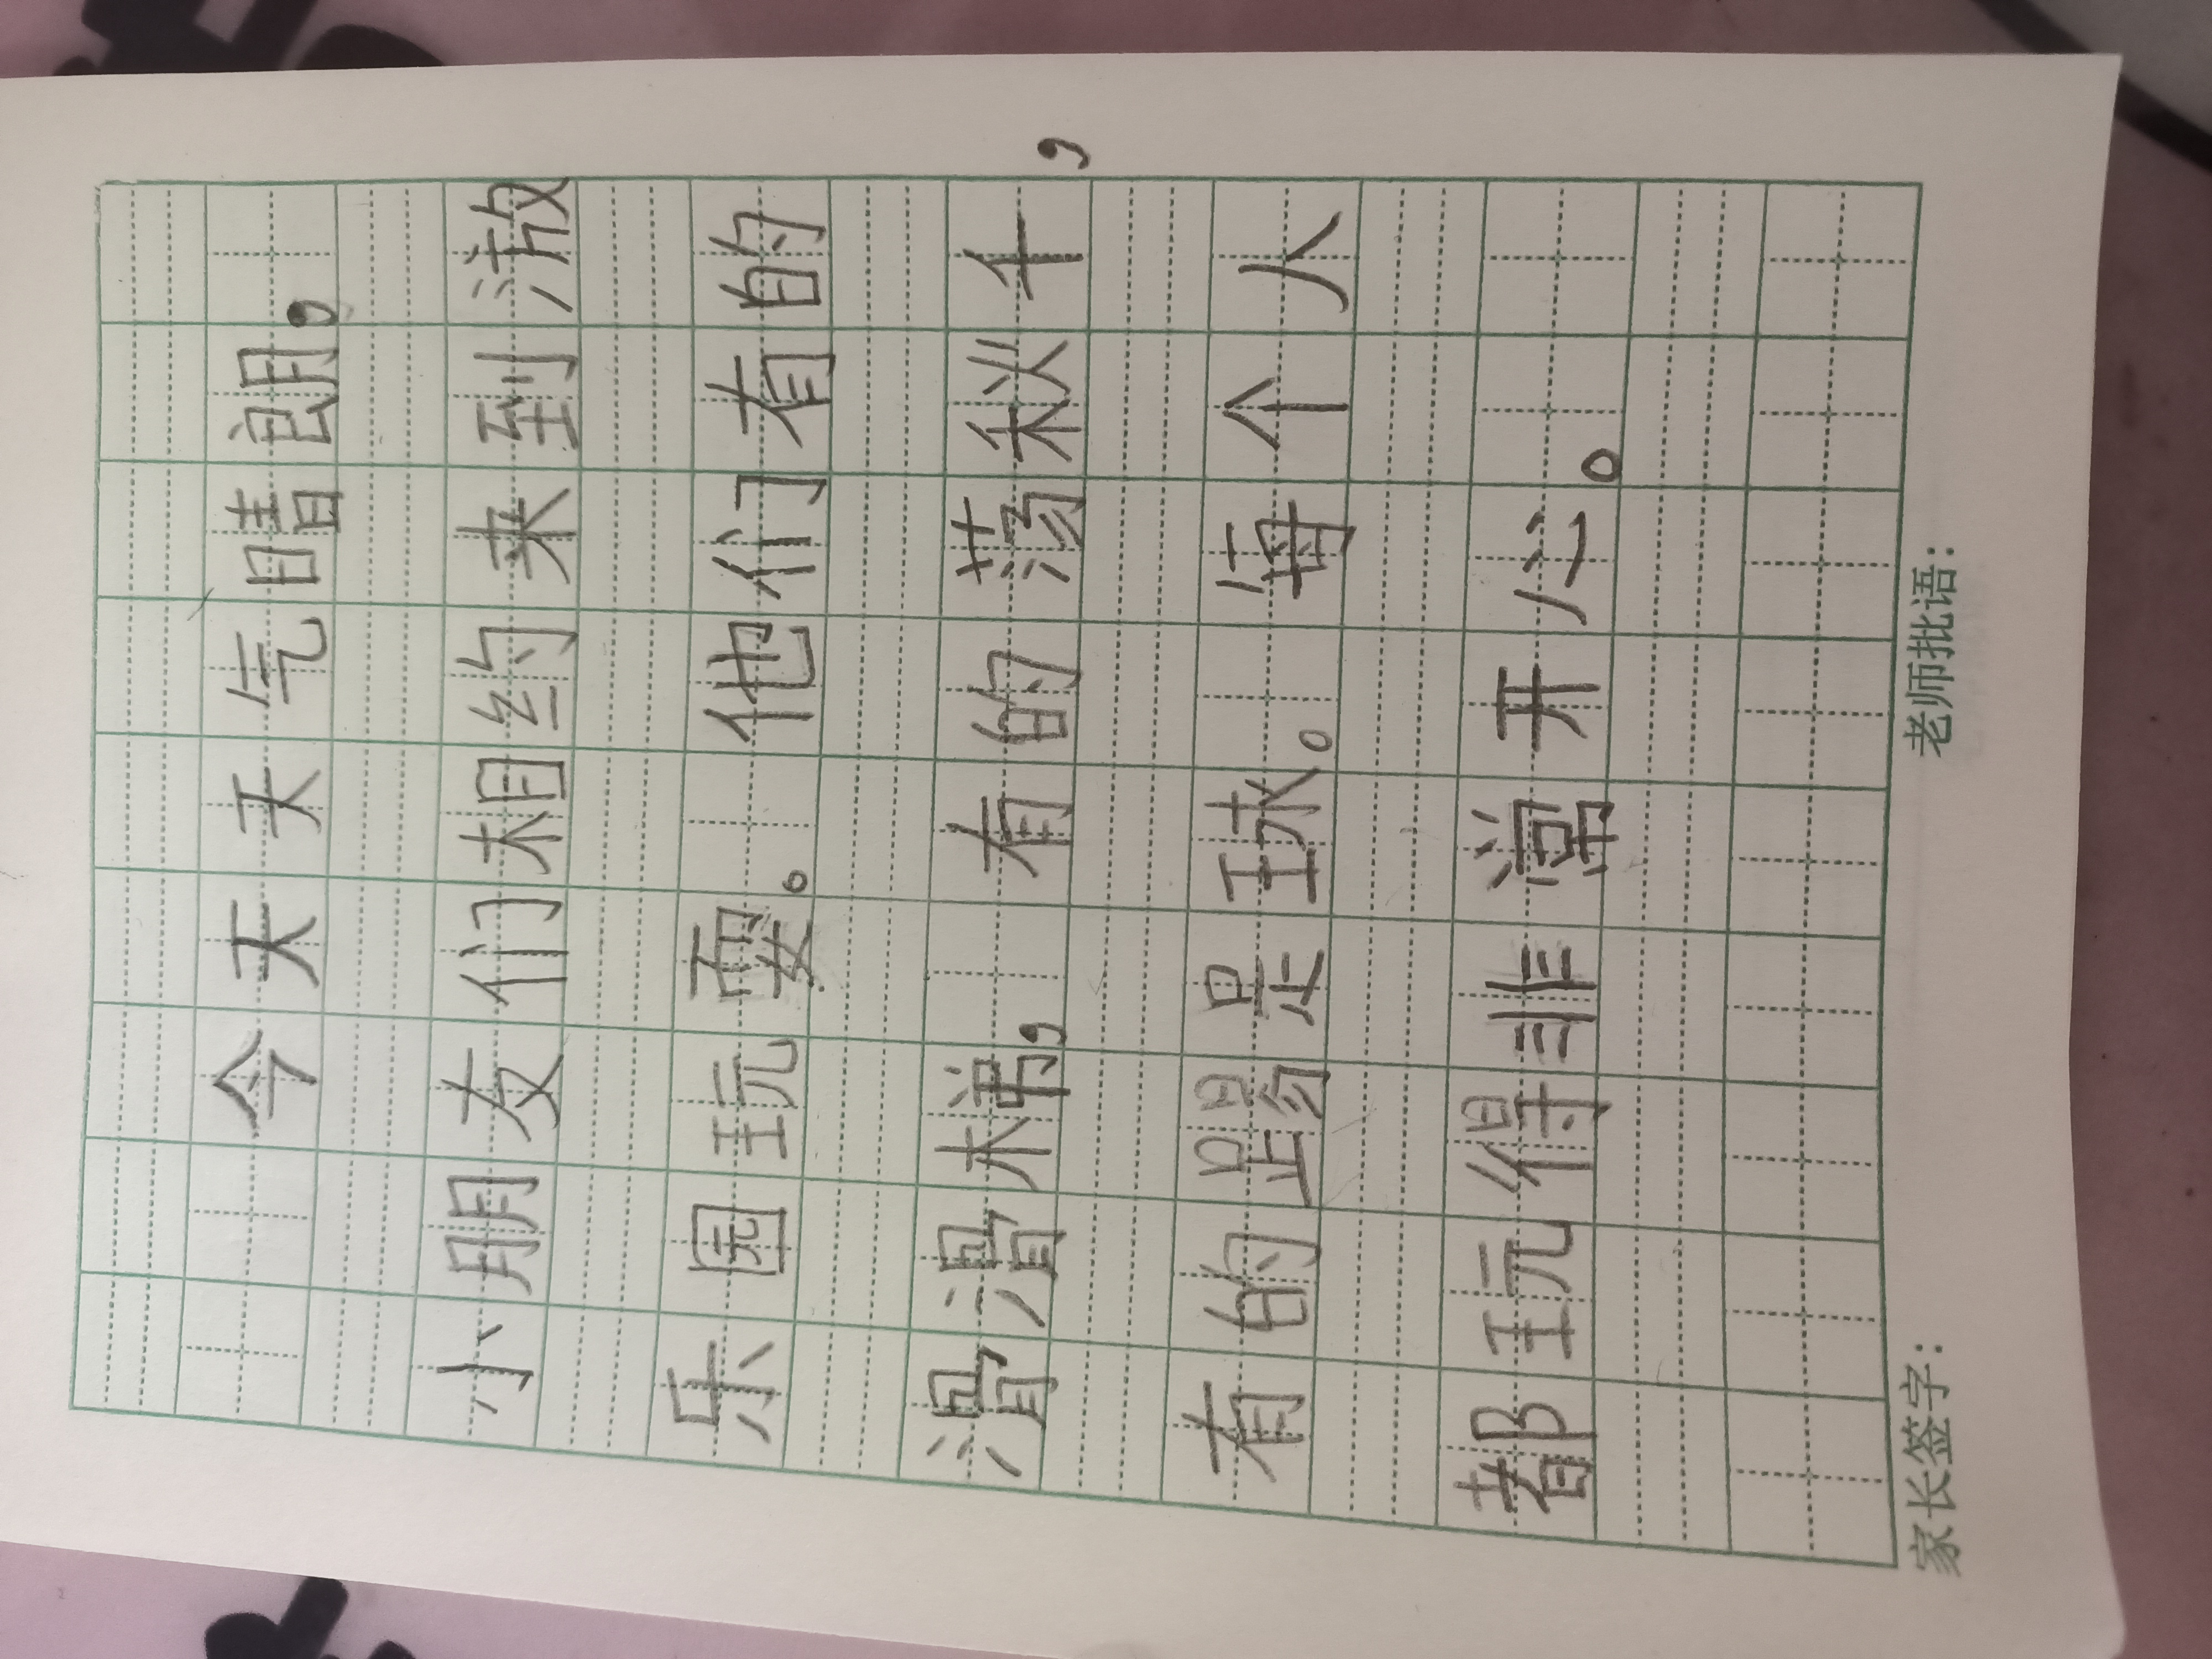 今天天气晴朗，
小朋友们相约来到游
乐园玩耍。他们有的
滑滑梯，有的荡秋千，
有的踢足球。每个人
都玩得非常开心。
家长签字： 老师批语：